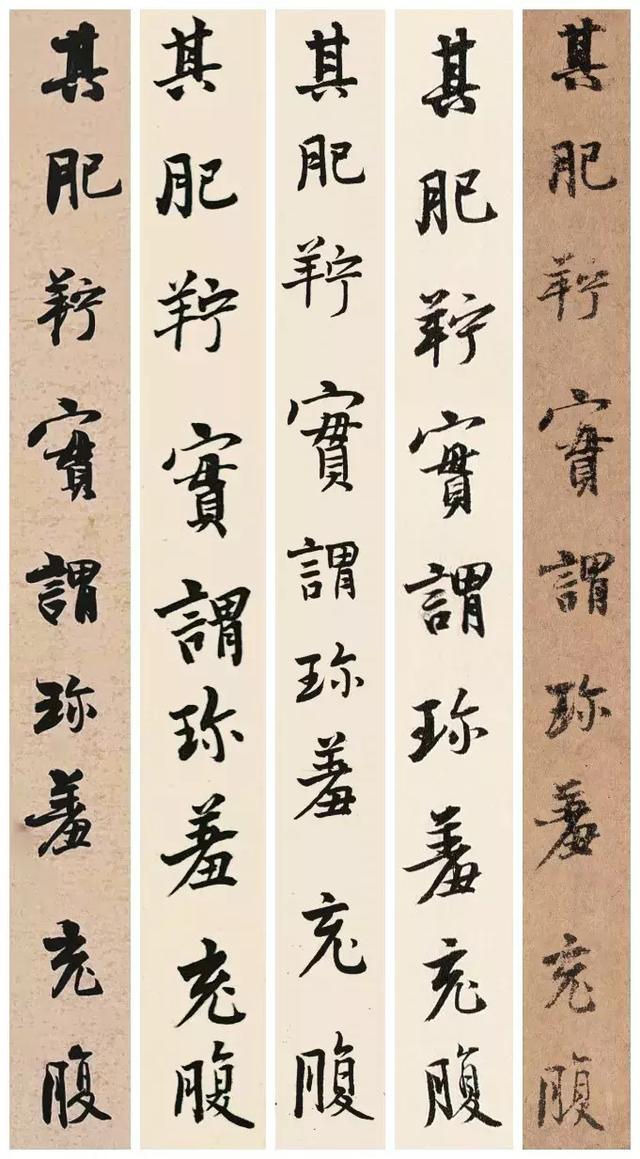 其肥羜實謂珍羞充腹
其肥羜實謂珍羞充腹
其肥羜實謂珍羞充腹
其肥羜實謂珍羞充腹
其肥羜實謂珍羞充腹